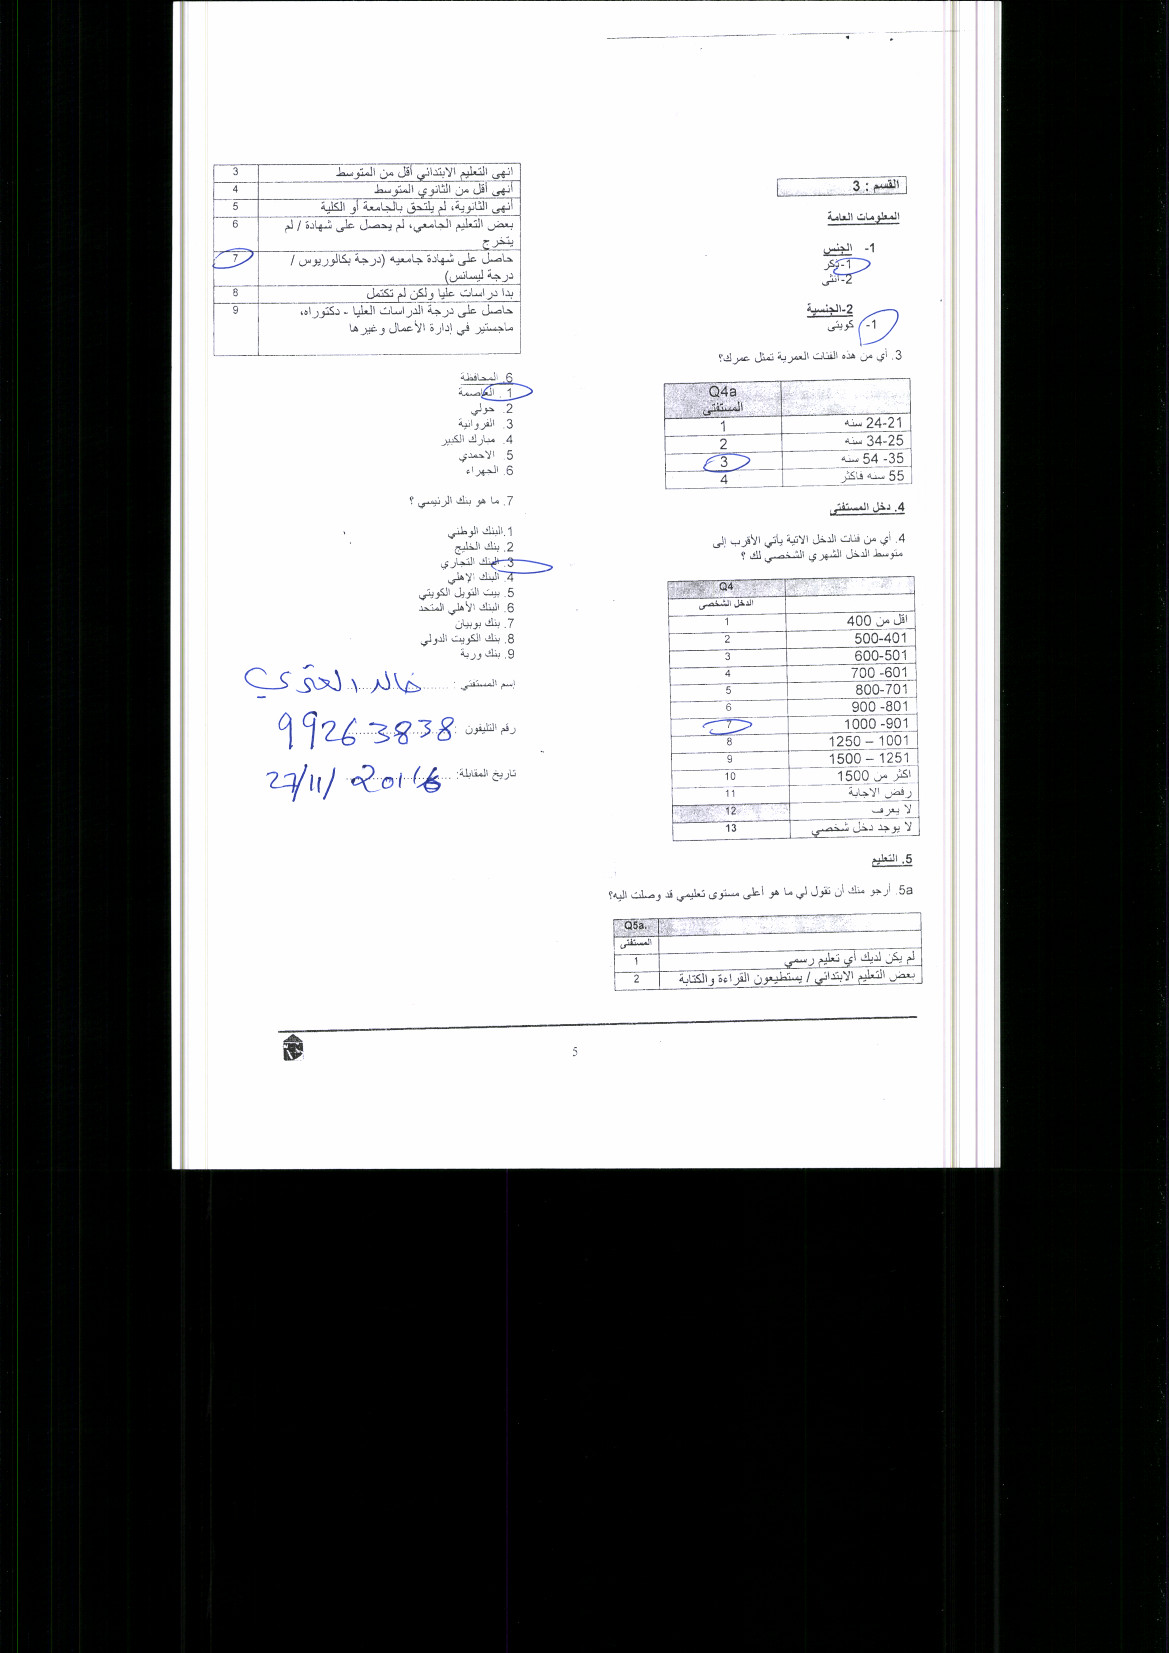 القسم : 3
المعلومات العامة
1- الجنس
1-ذكر
2-أنثى
2-الجنسية
1- كويتى
3. أي من هذه الفئات العمرية تمثل عمرك؟
Q4a
المستفتى
24-21 سنه 1
34-25 سنه 2
35- 54 سنه 3
55 سنه فاكثر 4
4. دخل المستفتى
4. أي من فئات الدخل الاتية يأتي الأقرب إلى
متوسط الدخل الشهري الشخصي لك ؟
Q4
الدخل الشخصى
اقل من 400 1
500-401 2
600-501 3
700 -601 4
800-701 5
900 -801 6
1000 -901 7
1250 – 1001 8
1500 – 1251 9
اكثر من 1500 10
رفض الاجابة 11
لا يعرف 12
لا يوجد دخل شخصي 13
5. التعليم
5a. أرجو منك أن تقول لي ما هو أعلى مستوى تعليمي قد وصلت اليه؟
Q5a.
المستفتى
لم يكن لديك أي تعليم رسمي 1
بعض التعليم الابتدائي / يستطيعون القراءة والكتابة 2
انهى التعليم الابتدائي أقل من المتوسط 3
أنهى أقل من الثانوي المتوسط 4
أنهى الثانوية، لم يلتحق بالجامعة أو الكلية 5
بعض التعليم الجامعي، لم يحصل على شهادة / لم 6
يتخرج
حاصل على شهادة جامعيه (درجة بكالوريوس / 7
درجة ليسانس)
بدا دراسات عليا ولكن لم تكتمل 8
حاصل على درجة الدراسات العليا - دكتوراه، 9
ماجستير في إدارة الأعمال وغيرها
6. المحافظة
1. العاصمة
2. حولي
3. الفروانية
4. مبارك الكبير
5 الاحمدي
6. الجهراء
7. ما هو بنك الرئيسي ؟
1.البنك الوطني
2. بنك الخليج
3. البنك التجاري
4. البنك الاهلي
5. بيت التويل الكويتي
6. البنك الأهلي المتحد
7. بنك بوبيان
8. بنك الكويت الدولي
9. بنك وربة
إسم المستفتي : خالد العنزي
رقم التليفون : 99263838
تاريخ المقابلة: 27/11/2016
5